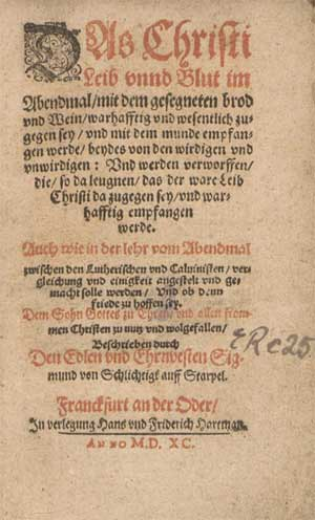 DAs Christi
Leib vnnd Blut im
Abendmal/mit dem gesegneten brod
vnd Wein/warhafftig vnd wesentlich zu-
gegen sey/vnd mit dem munde empfan-
gen werde/beydes von den wirdigen vnd
vnwirdigen: Vnd werden verworffen/
die/so da leugnen/das der ware Leib
Christi da zugegen sey/vnd war-
hafftig empfangen
werde.
Auch wie in der lehr vom Abendmal
zwischen den Lutherischen vnd Caluinisten/ver-
gleichung vnd einigkeit angestelt vnd ge-
macht solle werden/Vnd ob denn
friede zu hoffen sey.
Dem Sohn Gottes zu Ehren/vnd allen from-
men Christen zu nutz vnd wolgefallen/
Beschrieben durch
Den Edlen vnd Ehrnvesten Sig-
mund von Schlichtigk auff Starpel.
Franckfurt an der Oder/
In verlegung Hans vnd Friderich Hartman.
ANNO M.D.XC.